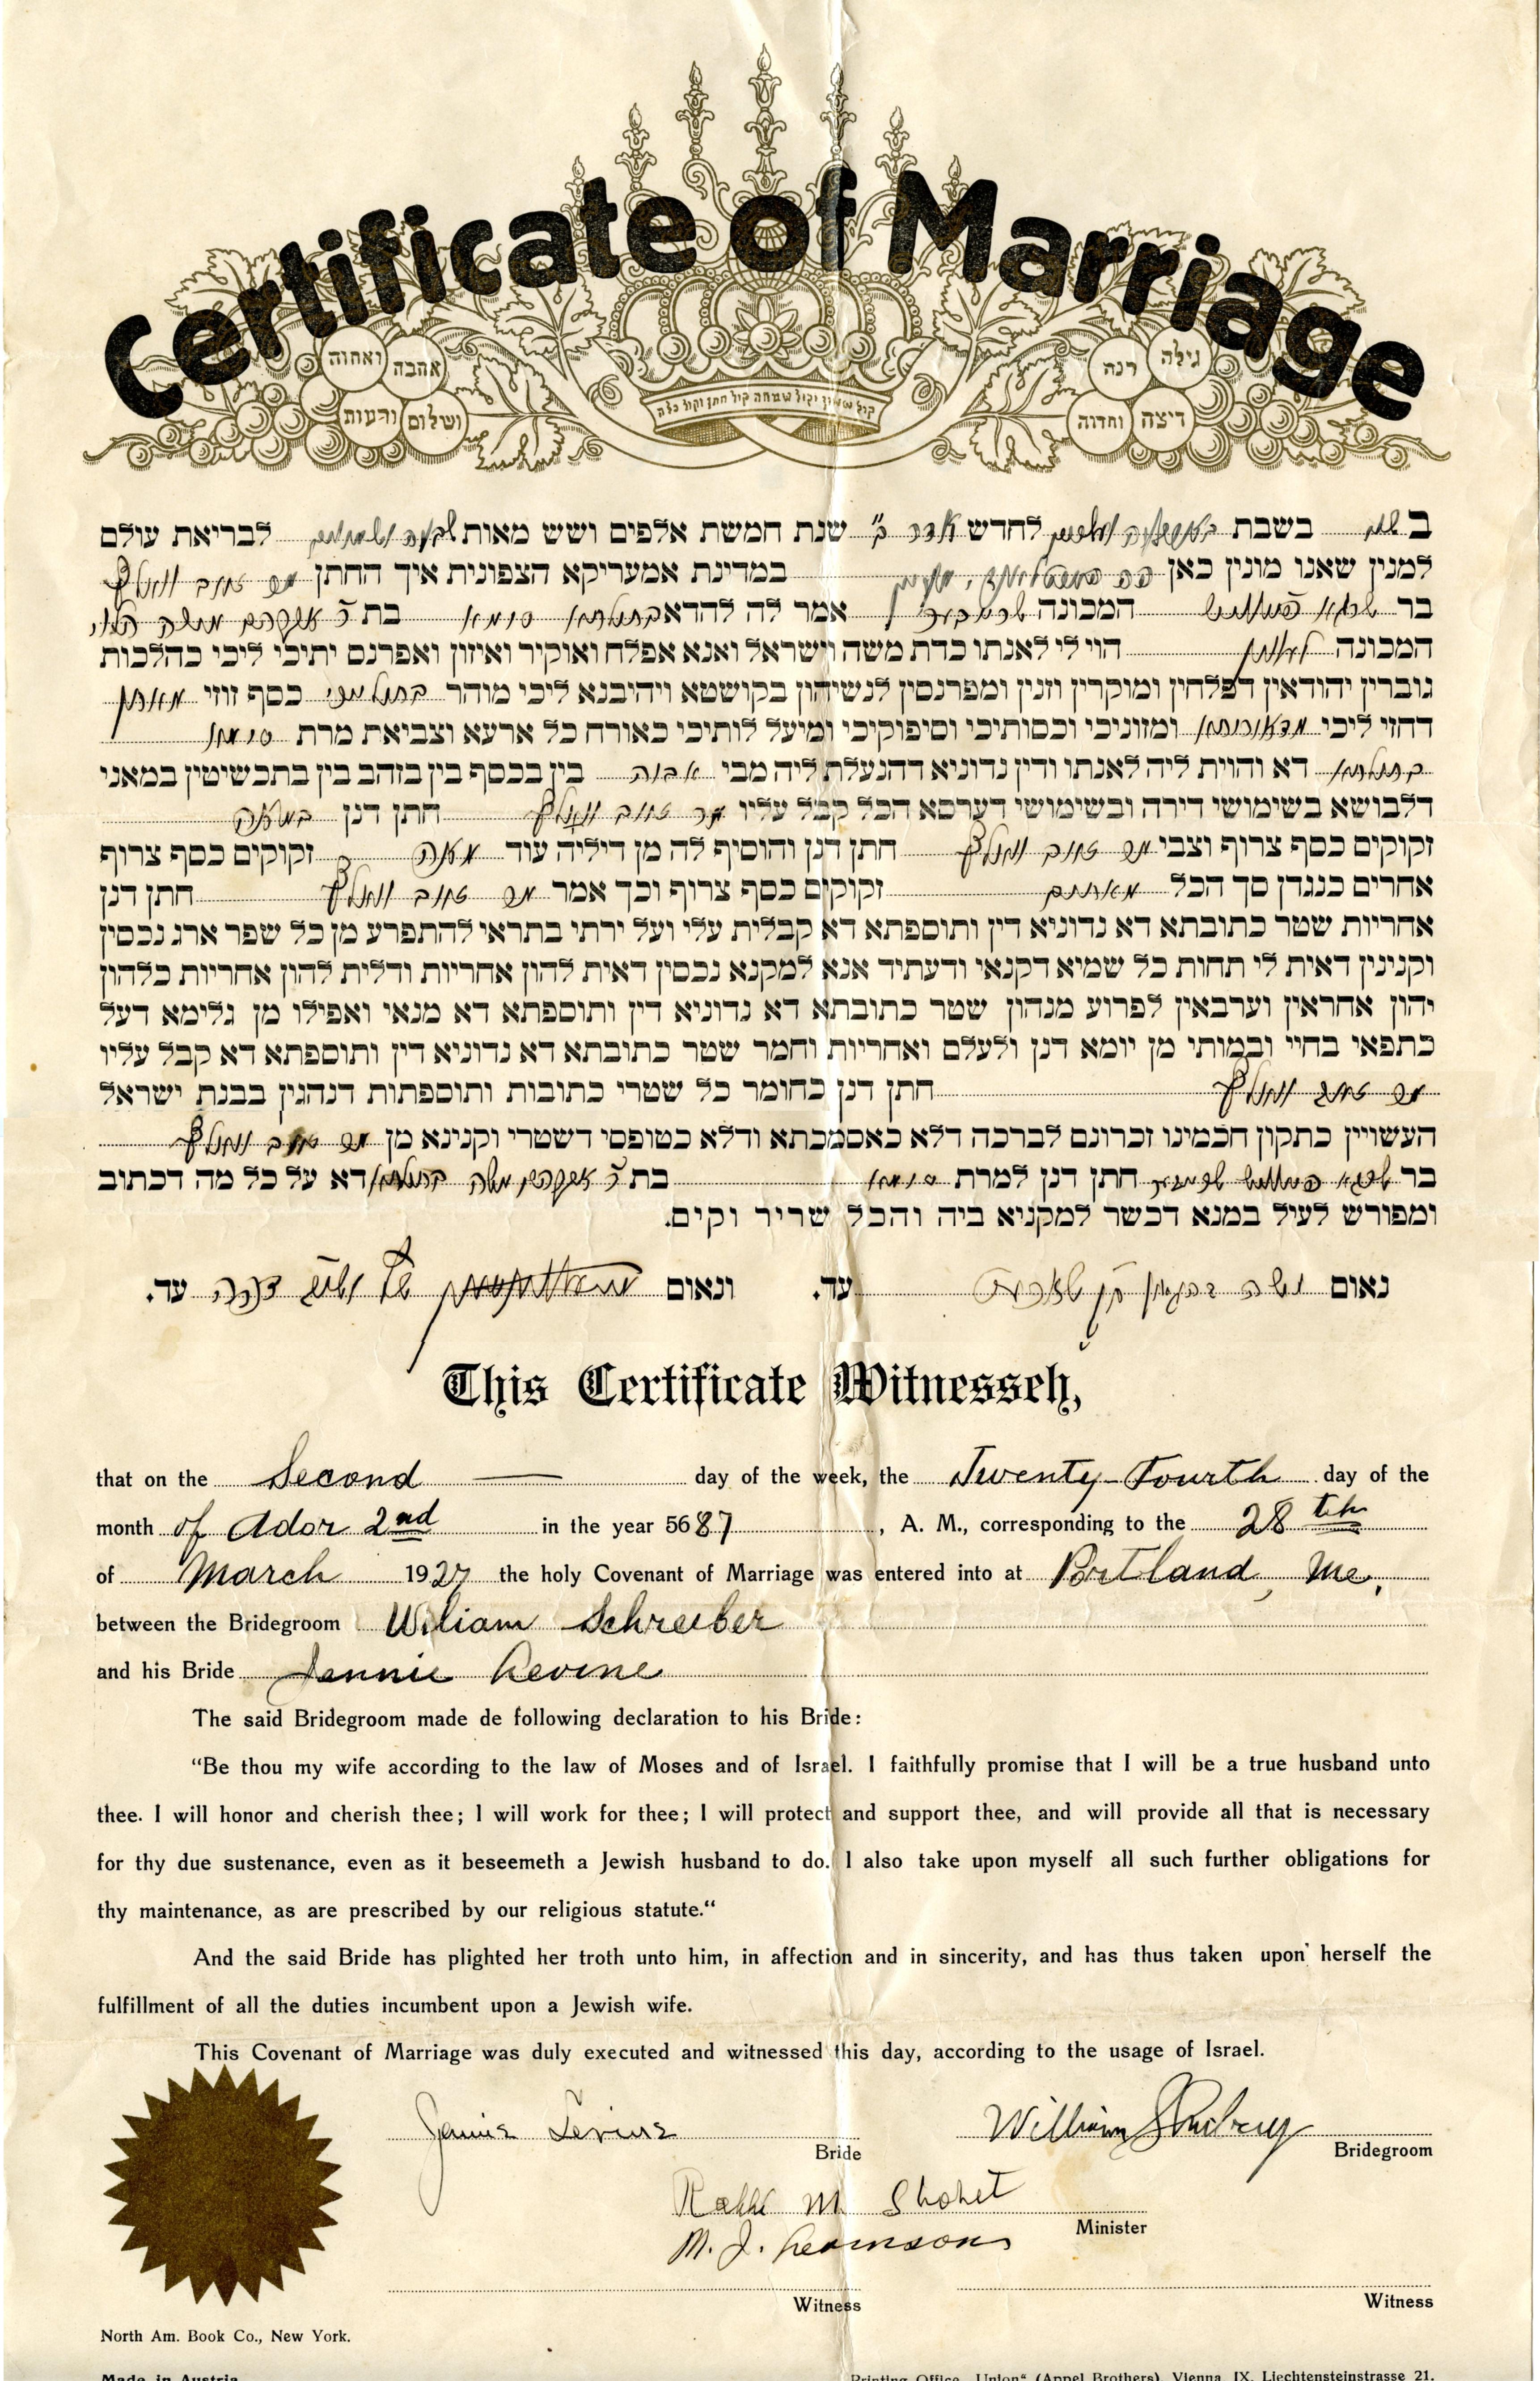 Certificate of Marriage
ואחוה אהבה
ורעות ושלום
גילה רנה
דיצה וחדוה
קול ששון וקול שמחה קול חתן וקול כלה
ב שני בשבת בעשרים לחדש אדר ב" שנת חמשת אלפים ושש מאות לבריאת עולם
למנין שאנו מונין כאן במדינת אמעריקא הצפונית איך החתן
בר המכונה אמר לה להדא בתולתא בת ר משה הלוי
המכונה הוי לי לאנתו כדת משה וישראל ואנא אפלח ואוקיר ואיזון ואפרנס יתיכי ליכי כהלכות
גוברין יהודאין דפלחין ומוקרין וזנין ומפרנסין לנשיהון בקושטא ויהיבנא ליכי מוהר בתוליכי כסף זוזי מאתן
דחזי ליכי מדאורייתא ומזוניכי וכסותיכי וסיפוקיכי ומיעל לותיכי כאורח כל ארעא וצביאת מרת
בתולתא דא והוית ליה לאנתו ודין נדוניא דהנעלת ליה מבי אבוה בין בכסף בין בזהב בין בתכשיטין במאני
דלבושא בשימושי דירה ובשימושי דערסא הכל קבל עליו חתן דנן במאה
זקוקים כסף צרוף וצבי חתן דנן והוסיף לה מן דיליה עוד מאה זקוקים כסף צרוף
אחרים כנגדן סך הכל מאתים זקוקים כסף צרוף וכך אמר חתן דנן
אחריות שטר כתובתא דא נדוניא דין ותוספתא דא קבלית עלי ועל ירתי בתראי להתפרע מן כל שפר ארג נכסין
וקנינין דאית לי תחות כל שמיא דקנאי ודעתיד אנא למקנא נכסין דאית להון אחריות ודלית להון אחריות כלהון
יהון אחראין וערבאין לפרוע מנהון שטר כתובתא דא נדוניא דין ותוספתא דא מנאי ואפילו מן גלימא דעל
כתפאי בחיי ובמותי מן יומא דנן ולעלם ואחריות וחמר שטר כתובתא דא נדוניא דין ותוספתא דא קבל עליו
חתן דנן כחומר כל שטרי כתובות ותוספתות דנהגין בבנת ישראל
העשויין כתקון חכמינו זכרונם לברכה דלא כאסמכתא ודלא כטופסי דשטרי וקנינא מן
בר חתן דנן למרת בת ר משה בתולתא דא על כל מה דכתוב
ומפורש לעיל במנא דכשר למקניא ביה והכל שריר וקים.
נאום עד. ונאום עד.
This Certificate Witnesseh,
that on the Second day of the week, the Twenty-Fourth day of the
month of Ador 2nd in the year 5687, A. M., corresponding to the 28th
of March 1927 the holy Covenant of Marriage was entered into at Portland, Me.
between the Bridegroom Wiliam Schreiber
and his Bride Jennie Levine
The said Bridegroom made de following declaration to his Bride:
“Be thou my wife according to the law of Moses and of Israel. I faithfully promise that I will be a true husband unto
thee. I will honor and cherish thee; I will work for thee; I will protect and support thee, and will provide all that is necessary
for thy due sustenance, even as it beseemeth a Jewish husband to do. I also take upon myself all such further obligations for
thy maintenance, as are prescribed by our religious statute.“
And the said Bride has plighted her troth unto him, in affection and in sincerity, and has thus taken upon herself the
fulfillment of all the duties incumbent upon a Jewish wife.
This Covenant of Marriage was duly executed and witnessed this day, according to the usage of Israel.
Jennie Levine William
Bride Bridegroom
Rabbi M Shohet
Minister
M. J.
Witness Witness
North Am. Book Co., New York.
Made in Austria
Printing Office „Union“ (Appel Brothers), Vienna, IX. Liechtensteinstrasse 21.